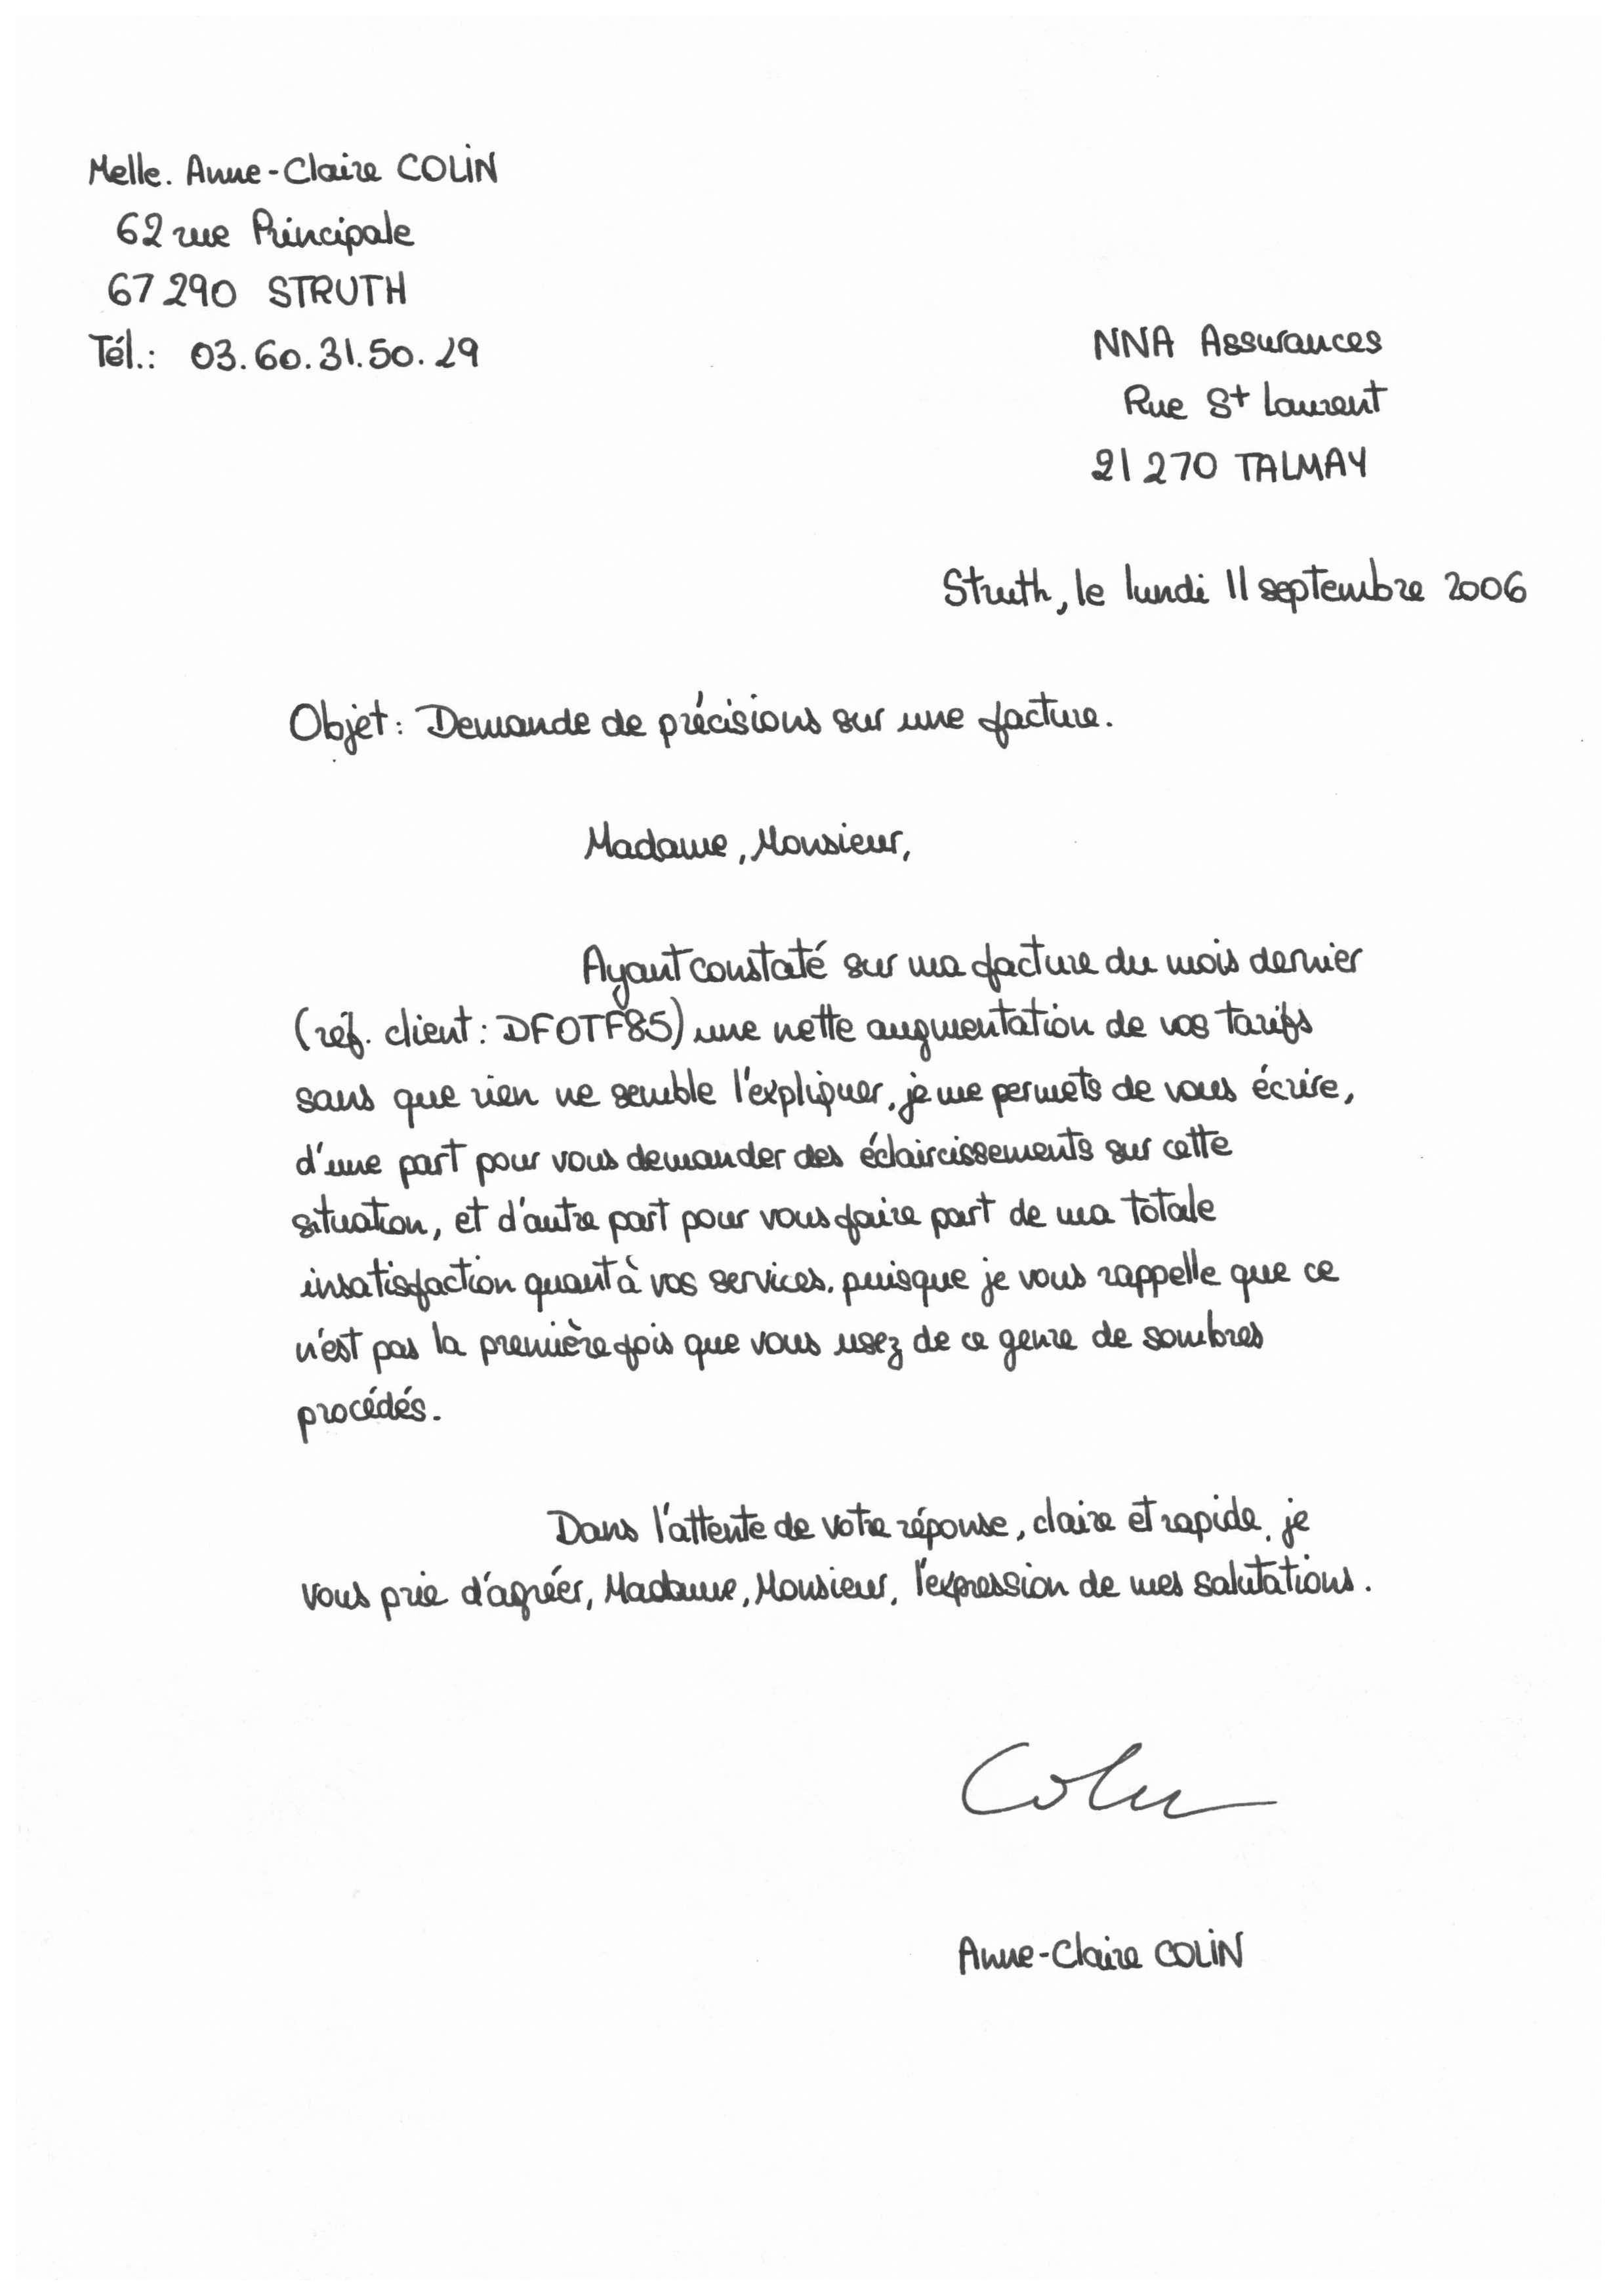 Melle. Anne-Claire COLIN
62 rue Principale
67290 STRUTH
Tél.: 03.60.31.50.29
NNA Assurances
Rue St Laurent
21270 TALMAY
Struth, le lundi 11 septembre 2006
Objet: Demande de précisions sur une facture.
Madame, Monsieur,
Ayant constaté sur ma facture du mois dernier
(réf. client: DFOTF85) une nette augmentation de vos tarifs
sans que rien ne semble l'expliquer, je me permets de vous écrire,
d'une part pour vous demander des éclaircissements sur cette
situation, et d'autre part pour vous faire part de ma totale
insatisfaction quant à vos services, puisque je vous rappelle que ce
n'est pas la première fois que vous usez de ce genre de sombres
procédés.
Dans l'attente de votre réponse, claire et rapide, je
vous prie d'agréer, Madame, Monsieur, l'expression de mes salutations.
Colin
Anne-Claire COLIN